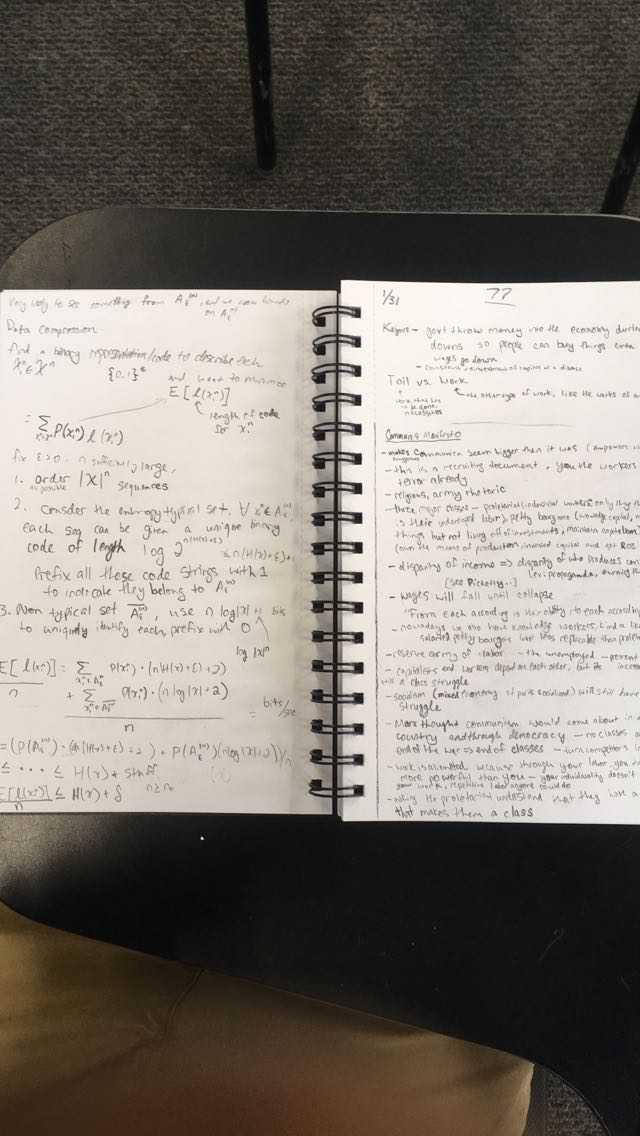 Very likely to see something from A_ε^(n), and we have bounds
on A_ε^(n)
Data compression
find a binary representation/code to describe each
x_i^n ∈ X^n
{0,1}* and want to minimize
E[l(x_1^n)]
length of code
for x_1^n
= Σ P(x_1^n) l(x_1^n)
fix ε>0. n sufficiently large,
1. order |X|^n sequences
2. Consider the entropy typical set. ∀ x_1^n ∈ A_ε^(n)
each seq can be given a unique binary
code of length log 2^n(H(x)+ε)
prefix all those code strings with 1
to indicate they belong to A_ε^(n)
3. Non typical set A_ε^(n), use n log|X|+1 bits
to uniquely identify each, prefix with 0
log |X|^n
E[l(x_1^n)] = Σ P(x_1^n)·(n(H(x)+ε)+2)
n
+ Σ P(x_1^n)·(n log|X|+2)
n
= bits/
= (P(A_ε^(n))·(n(H(x)+ε)+2) + P(A_ε^(n))(n log|X|+2))/n
≤ ··· ≤ H(x) + stuff
E[l(x_1^n)] ≤ H(x) + δ n ≥ n₀
n
1/31
77
Keynes - govt throw money into the economy during
downs so people can buy things even
wages go down
Toil vs. Work
the other type of work, like the works of a
work that has
to be done,
necessities
Communist Manifesto
- makes communism seem bigger than it was
- this is a recruiting document, you the workers
already
- religious, army rhetoric
- three major classes - proletariat/industrial workers only they
is their labor, petty bourgeoisie
things but not living off of investments, maintain
(own the means of production, invested capital and get ROI
- disparity of income => disparity of who produces
[see Picketty...] (ex: propaganda, owning the
- wages will fall until collapse
"From each according to their ability to each according
- nowadays we have knowledge workers, kind of like
salaried petty bourgeois were less replaceable than
- reserve army of labor - the unemployed - prevent
- capitalists and workers depend on each other, but its
a class struggle
- socialism (mixed economy of parts socialized) will still have
struggle
- Marx thought communism would come about in
country and through democracy - no classes
end of the war = end of classes - turn competitors
- work is alienated because through your labor, you
more powerful than you - your individuality doesn't
your work, repetitive labor anyone could do
- why the proletariat understand that they have a
that makes them a class